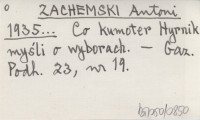 ZACHEMSKI Antoni
1935... Co kumoter Hyrnik
myśli o wyborach. - Gaz.
Podh. 23, nr 19.